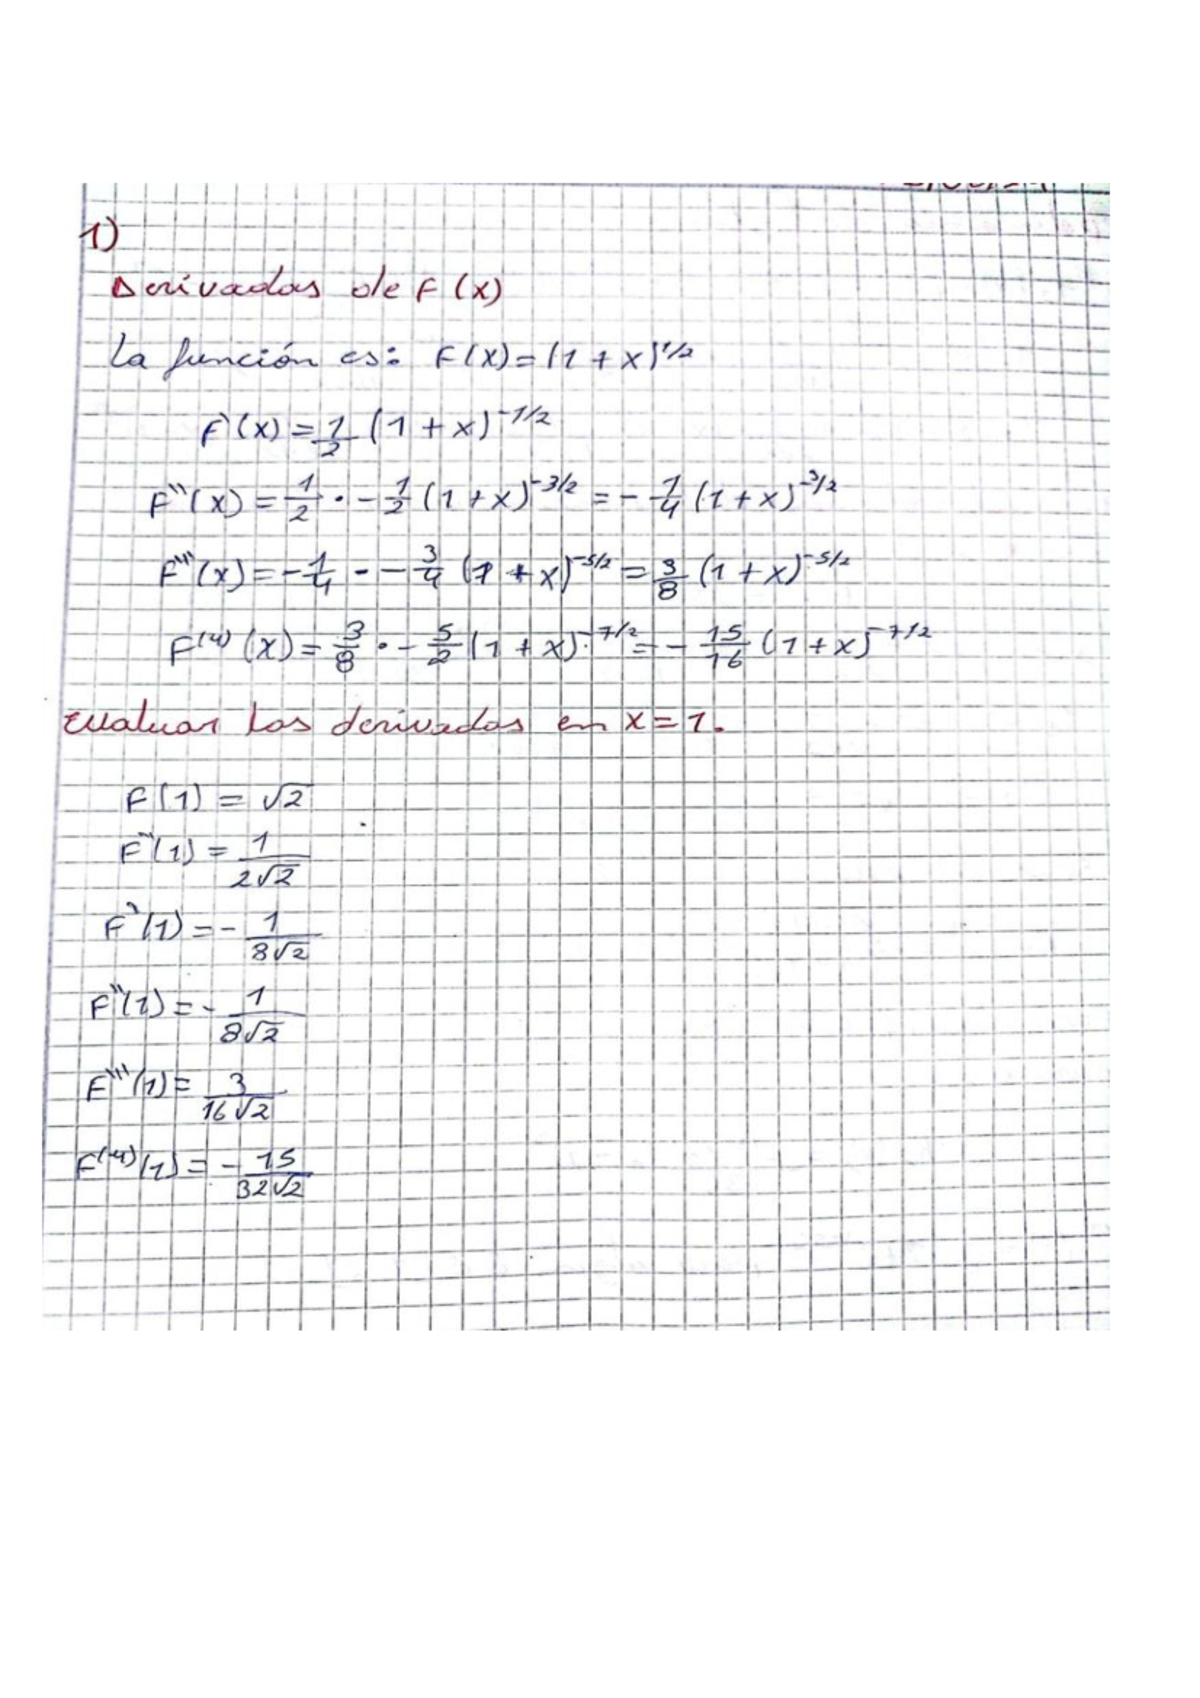 1)
Derivadas de F(x)
La función es: F(x)=(1+x)^1/2
F`(x)=1/2 (1+x)^-1/2
F``(x)=1/2 · -1/2 (1+x)^-3/2 = -1/4 (1+x)^-3/2
F```(x)=-1/4 · -3/4 (1+x)^-5/2 = 3/8 (1+x)^-5/2
F^(4)(x)=3/8 · -5/2 (1+x)^-7/2 = -15/16 (1+x)^-7/2
Evaluar las derivadas en x=1.
F(1)=√2
F``(1)=1/2√2
F`(1)=-1/8√2
F``(1)=-1/8√2
F```(1)=3/16√2
F^(4)(1)=-15/32√2